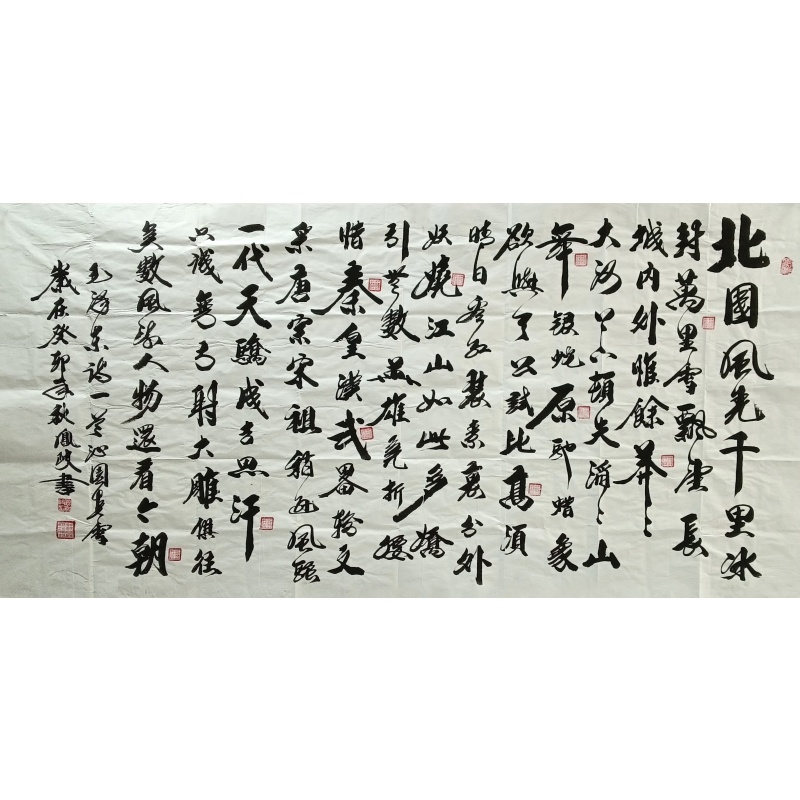 北國風光千里冰
封萬里雪飄望長
城内外惟餘莽々
大河上下頓失滔々山
舞銀蛇原馳蠟象
欲與天公試比高須
晴日看紅裝素裹分外
妖嬈江山如此多嬌
引無數英雄競折腰
惜秦皇漢武略輸文
采唐宗宋祖稍遜風騷
一代天驕成吉思汗
只識彎弓射大雕俱往
矣數風流人物還看今朝
毛澤東詩一首沁園春雪
歲在癸卯年秋鳳書